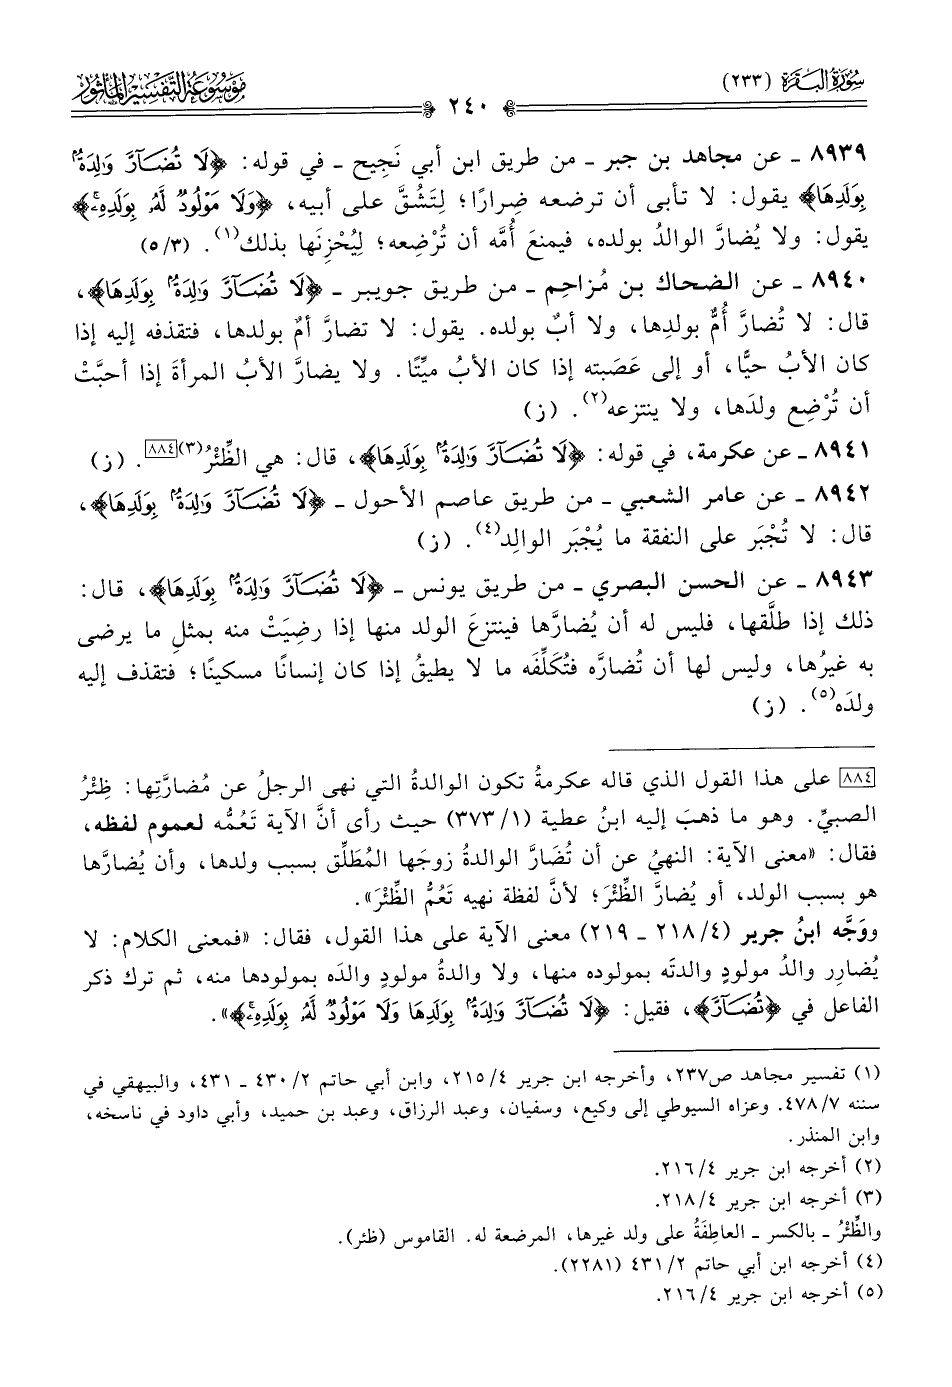 سُورَةُ البَقَرَةِ (٢٣٣)
٢٤٠
مَوْسُوعَةُ التَّفْسِيْرِ المَأْثُورِ
٨٩٣٩ ـ عن مجاهد بن جبر ـ من طريق ابن أبي نَجِيح ـ في قوله: ﴿لَا تُضَآرَّ وَٰلِدَةُۢ
بِوَلَدِهَا﴾ يقول: لا تأبى أن ترضعه ضِرارًا؛ لِتَشُقَّ على أبيه، ﴿وَلَا مَوْلُودٌ لَّهُۥ بِوَلَدِهِۦۚ﴾
يقول: ولا يُضارَّ الوالدُ بولده، فيمنعَ أُمَّه أن تُرْضِعه؛ لِيُحْزِنَها بذلك(١). (٥/٣)
٨٩٤٠ ـ عن الضحاك بن مُزاحِم ـ من طريق جويبر ـ ﴿لَا تُضَآرَّ وَٰلِدَةُۢ بِوَلَدِهَا﴾،
قال: لا تُضارَّ أُمٌّ بولدِها، ولا أبٌ بولده. يقول: لا تضارَّ أمٌ بولدها، فتقذفه إليه إذا
كان الأبُ حيًّا، أو إلى عَصَبته إذا كان الأبُ ميِّتًا. ولا يضارَّ الأبُ المرأةَ إذا أحبَّتْ
أن تُرْضِع ولدَها، ولا ينتزعه(٢). (ز)
٨٩٤١ ـ عن عكرمة، في قوله: ﴿لَا تُضَآرَّ وَٰلِدَةُۢ بِوَلَدِهَا﴾، قال: هي الظِّئْرُ(٣)[٨٨٤]. (ز)
٨٩٤٢ ـ عن عامر الشعبي ـ من طريق عاصم الأحول ـ ﴿لَا تُضَآرَّ وَٰلِدَةُۢ بِوَلَدِهَا﴾،
قال: لا تُجْبَر على النفقة ما يُجْبَر الوالِد(٤). (ز)
٨٩٤٣ ـ عن الحسن البصري ـ من طريق يونس ـ ﴿لَا تُضَآرَّ وَٰلِدَةُۢ بِوَلَدِهَا﴾، قال:
ذلك إذا طلَّقها، فليس له أن يُضارَّها فينتزعَ الولد منها إذا رضِيَتْ منه بمثلِ ما يرضى
به غيرُها، وليس لها أن تُضارَّه فتُكَلِّفَه ما لا يطيقُ إذا كان إنسانًا مسكينًا؛ فتقذف إليه
ولدَه(٥). (ز)
[٨٨٤] على هذا القول الذي قاله عكرمةُ تكون الوالدةُ التي نهى الرجلُ عن مُضارَّتِها: ظِئْرُ
الصبيِّ. وهو ما ذهبَ إليه ابنُ عطية (٣٧٣/١) حيث رأى أنَّ الآية تَعُمُّه لعموم لفظه،
فقال: «معنى الآية: النهيُ عن أن تُضَارَّ الوالدةُ زوجَها المُطَلِّق بسبب ولدها، وأن يُضارَّها
هو بسبب الولد، أو يُضارَّ الظِّئْرَ؛ لأنَّ لفظة نهيه تَعُمُّ الظِّئْرَ».
ووَجَّه ابنُ جرير (٢١٨/٤ ـ ٢١٩) معنى الآية على هذا القول، فقال: «فمعنى الكلام: لا
يُضارِر والدُ مولودٍ والدتَه بمولوده منها، ولا والدةُ مولودٍ والدَه بمولودها منه، ثم ترك ذكر
الفاعل في ﴿تُضَآرَّ﴾، فقيل: ﴿لَا تُضَآرَّ وَٰلِدَةُۢ بِوَلَدِهَا وَلَا مَوْلُودٌ لَّهُۥ بِوَلَدِهِۦۚ﴾».
(١) تفسير مجاهد ص٢٣٧، وأخرجه ابن جرير ٢١٥/٤، وابن أبي حاتم ٤٣٠/٢ ـ ٤٣١، والبيهقي في
سننه ٤٧٨/٧. وعزاه السيوطي إلى وكيع، وسفيان، وعبد الرزاق، وعبد بن حميد، وأبي داود في ناسخه،
وابن المنذر.
(٢) أخرجه ابن جرير ٢١٦/٤.
(٣) أخرجه ابن جرير ٢١٨/٤.
والظِّئْرُ ـ بالكسر ـ العاطِفَةُ على ولد غيرها، المرضعة له. القاموس (ظئر).
(٤) أخرجه ابن أبي حاتم ٤٣١/٢ (٢٢٨١).
(٥) أخرجه ابن جرير ٢١٦/٤.